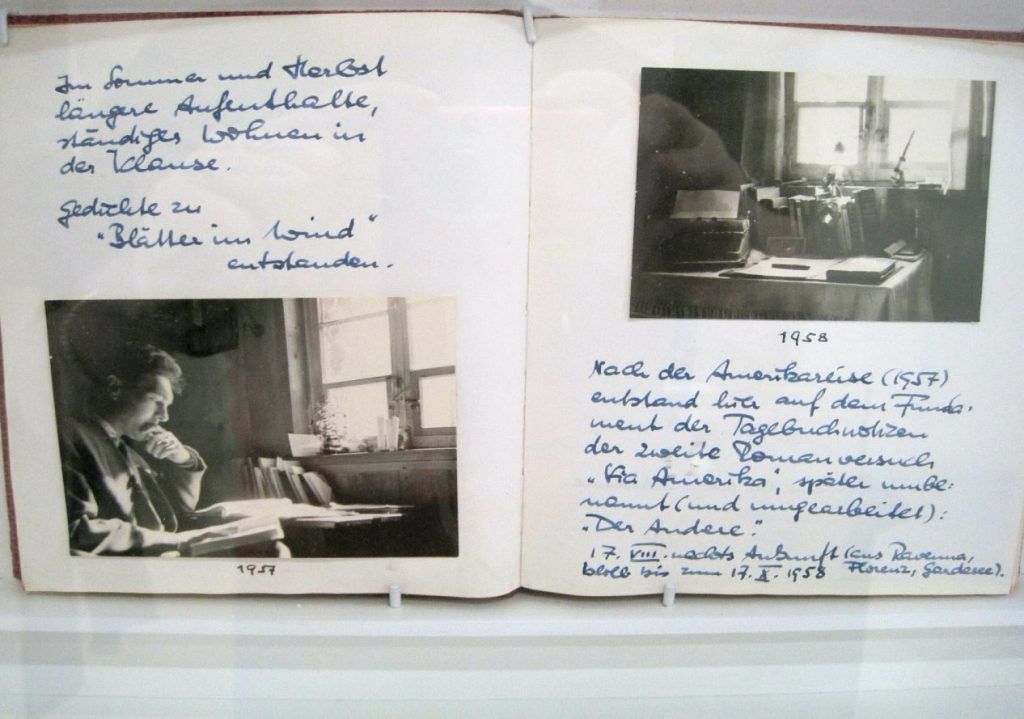 Im Sommer und Herbst
längere Aufenthalte,
ständiges Wohnen in
der Klause.
Gedichte zu
"Blätter im Wind"
entstanden.
1957
1958
Nach der Amerikareise (1957)
entstand hier auf dem Funda-
ment der Tagebuchnotizen
der zweite Romanversuch
"Via Amerika", später umbe-
nannt (und umgearbeitet):
"Der Andere".
17. VIII. nachts Ankunft (aus Ravenna,
blieb bis zum 17. X. 1958 Florenz, Gardasee).